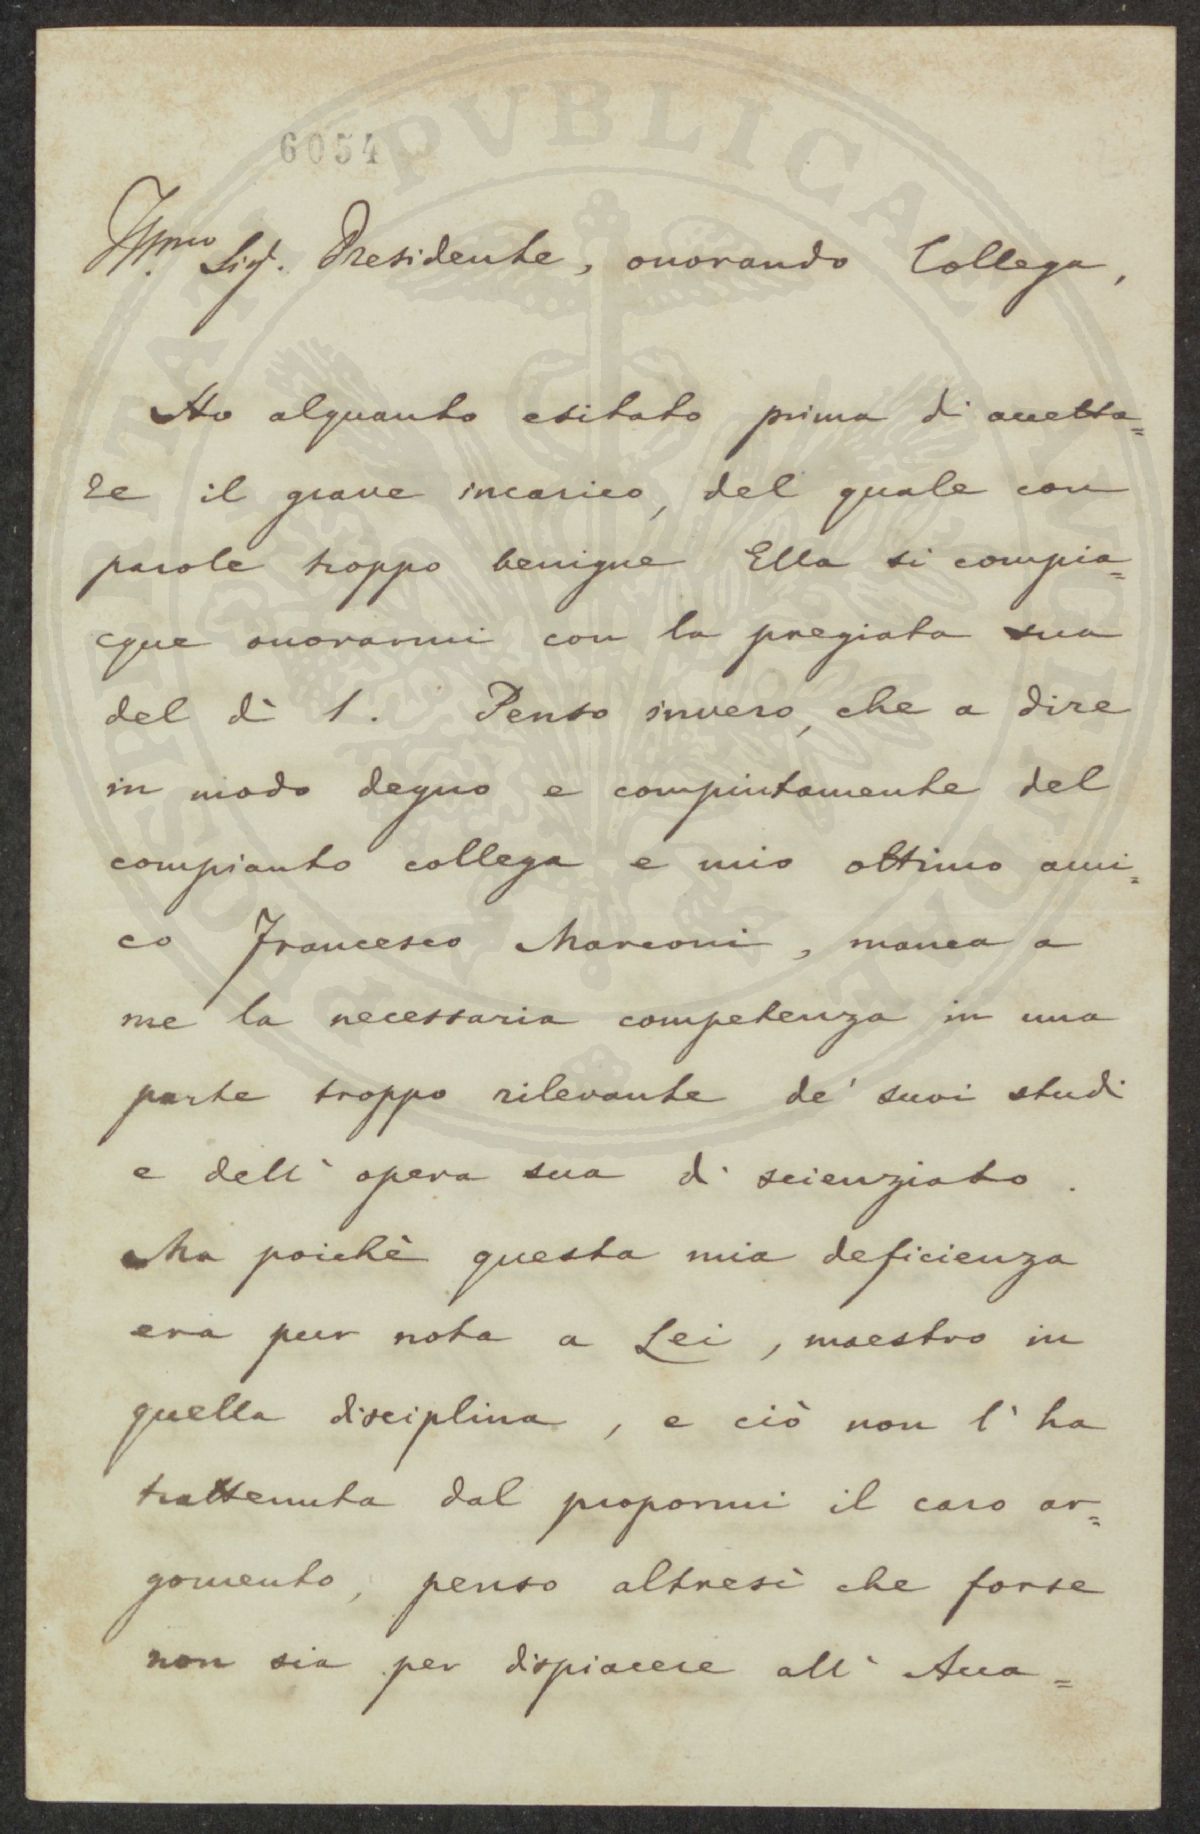 6054
Ill.mo Sig. Presidente, onorando Collega,
Ho alquanto esitato prima di accetta=
re il grave incarico, del quale con
parole troppo benigne Ella si compia=
cque onorarmi con la pregiata sua
del dì 1. Penso invero, che a dire
in modo degno e compiutamente del
compianto collega e mio ottimo ami=
co Francesco Marconi, manca a
me la necessaria competenza in una
parte troppo rilevante de' suoi studi
e dell' opera sua di scienziato.
Ma poichè questa mia deficienza
era pur nota a Lei, maestro in
quella disciplina, e ciò non l' ha
trattenuta dal propormi il caro ar=
gomento, penso altresì che forse
non sia per dispiacere all' Acca=